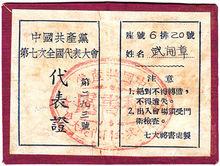 中國共產黨
第七次全國代表大會
代表證
第二九三號
座號6排20號
姓名
注意
1.絕對不得轉借，
不得遺失。
2.出入會場須受門
衛檢查。
七大秘書處製